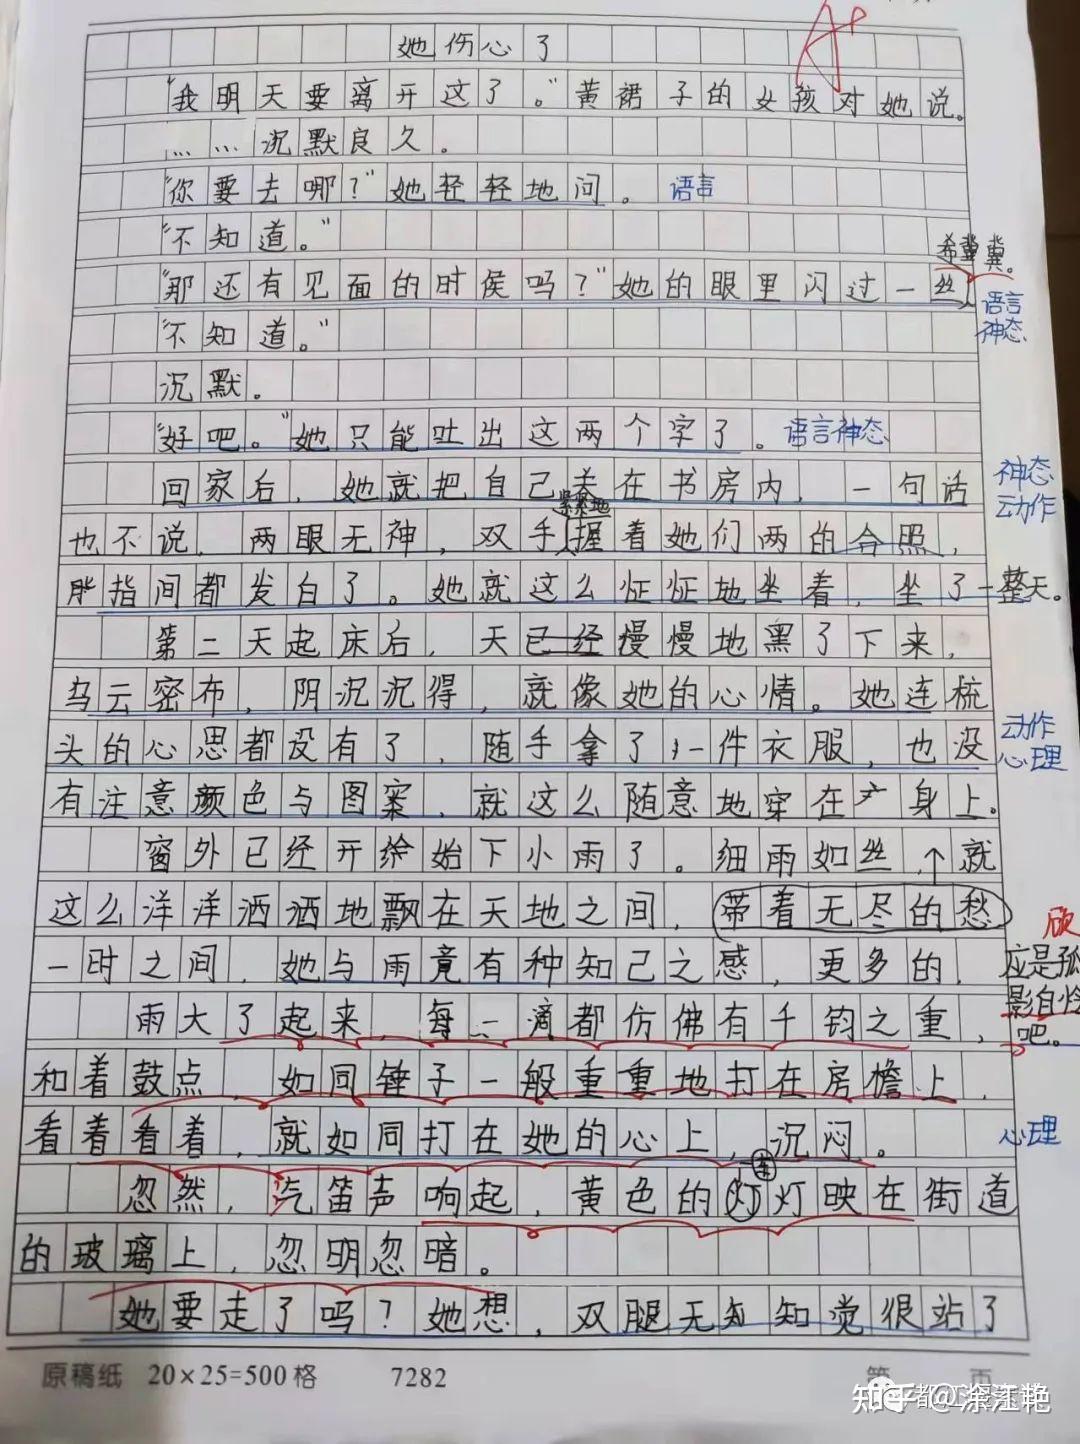 她伤心了
A+
"我明天要离开这了。"黄裙子的女孩对她说。
……沉默良久。
"你要去哪？"她轻轻地问。 语言
"不知道。"
希冀。
"那还有见面的时侯吗？"她的眼里闪过一丝
语言
神态
"不知道。"
沉默。
"好吧。"她只能吐出这两个字了。 语言神态
神态
动作
回家后，她就把自己关在书房内，一句话
紧紧地
也不说，两眼无神，双手握着她们两的合照，
指间都发白了。她就这么怔怔地坐着，坐了一整天。
第二天起床后，天已经慢慢地黑了下来，
乌云密布，阴沉沉得，就像她的心情。她连梳
头的心思都没有了，随手拿了一件衣服，也没
动作
心理
有注意颜色与图案，就这么随意地穿在身上。
窗外已经开始下小雨了。细雨如丝，就
这么洋洋洒洒地飘在天地之间，带着无尽的愁
一时之间，她与雨竟有种知己之感，更多的，
应是孤
影自怜
吧。
雨大了起来，每一滴都仿佛有千钧之重，
和着鼓点，如同锤子一般重重地打在房檐上，
看着看着，就如同打在她的心上，沉闷。
心理
忽然，汽笛声响起，黄色的车灯映在街道
的玻璃上，忽明忽暗。
她要走了吗？她想，双腿无知知觉很站了
原稿纸 20×25=500格 7282 第 页
知乎 @涂江艳